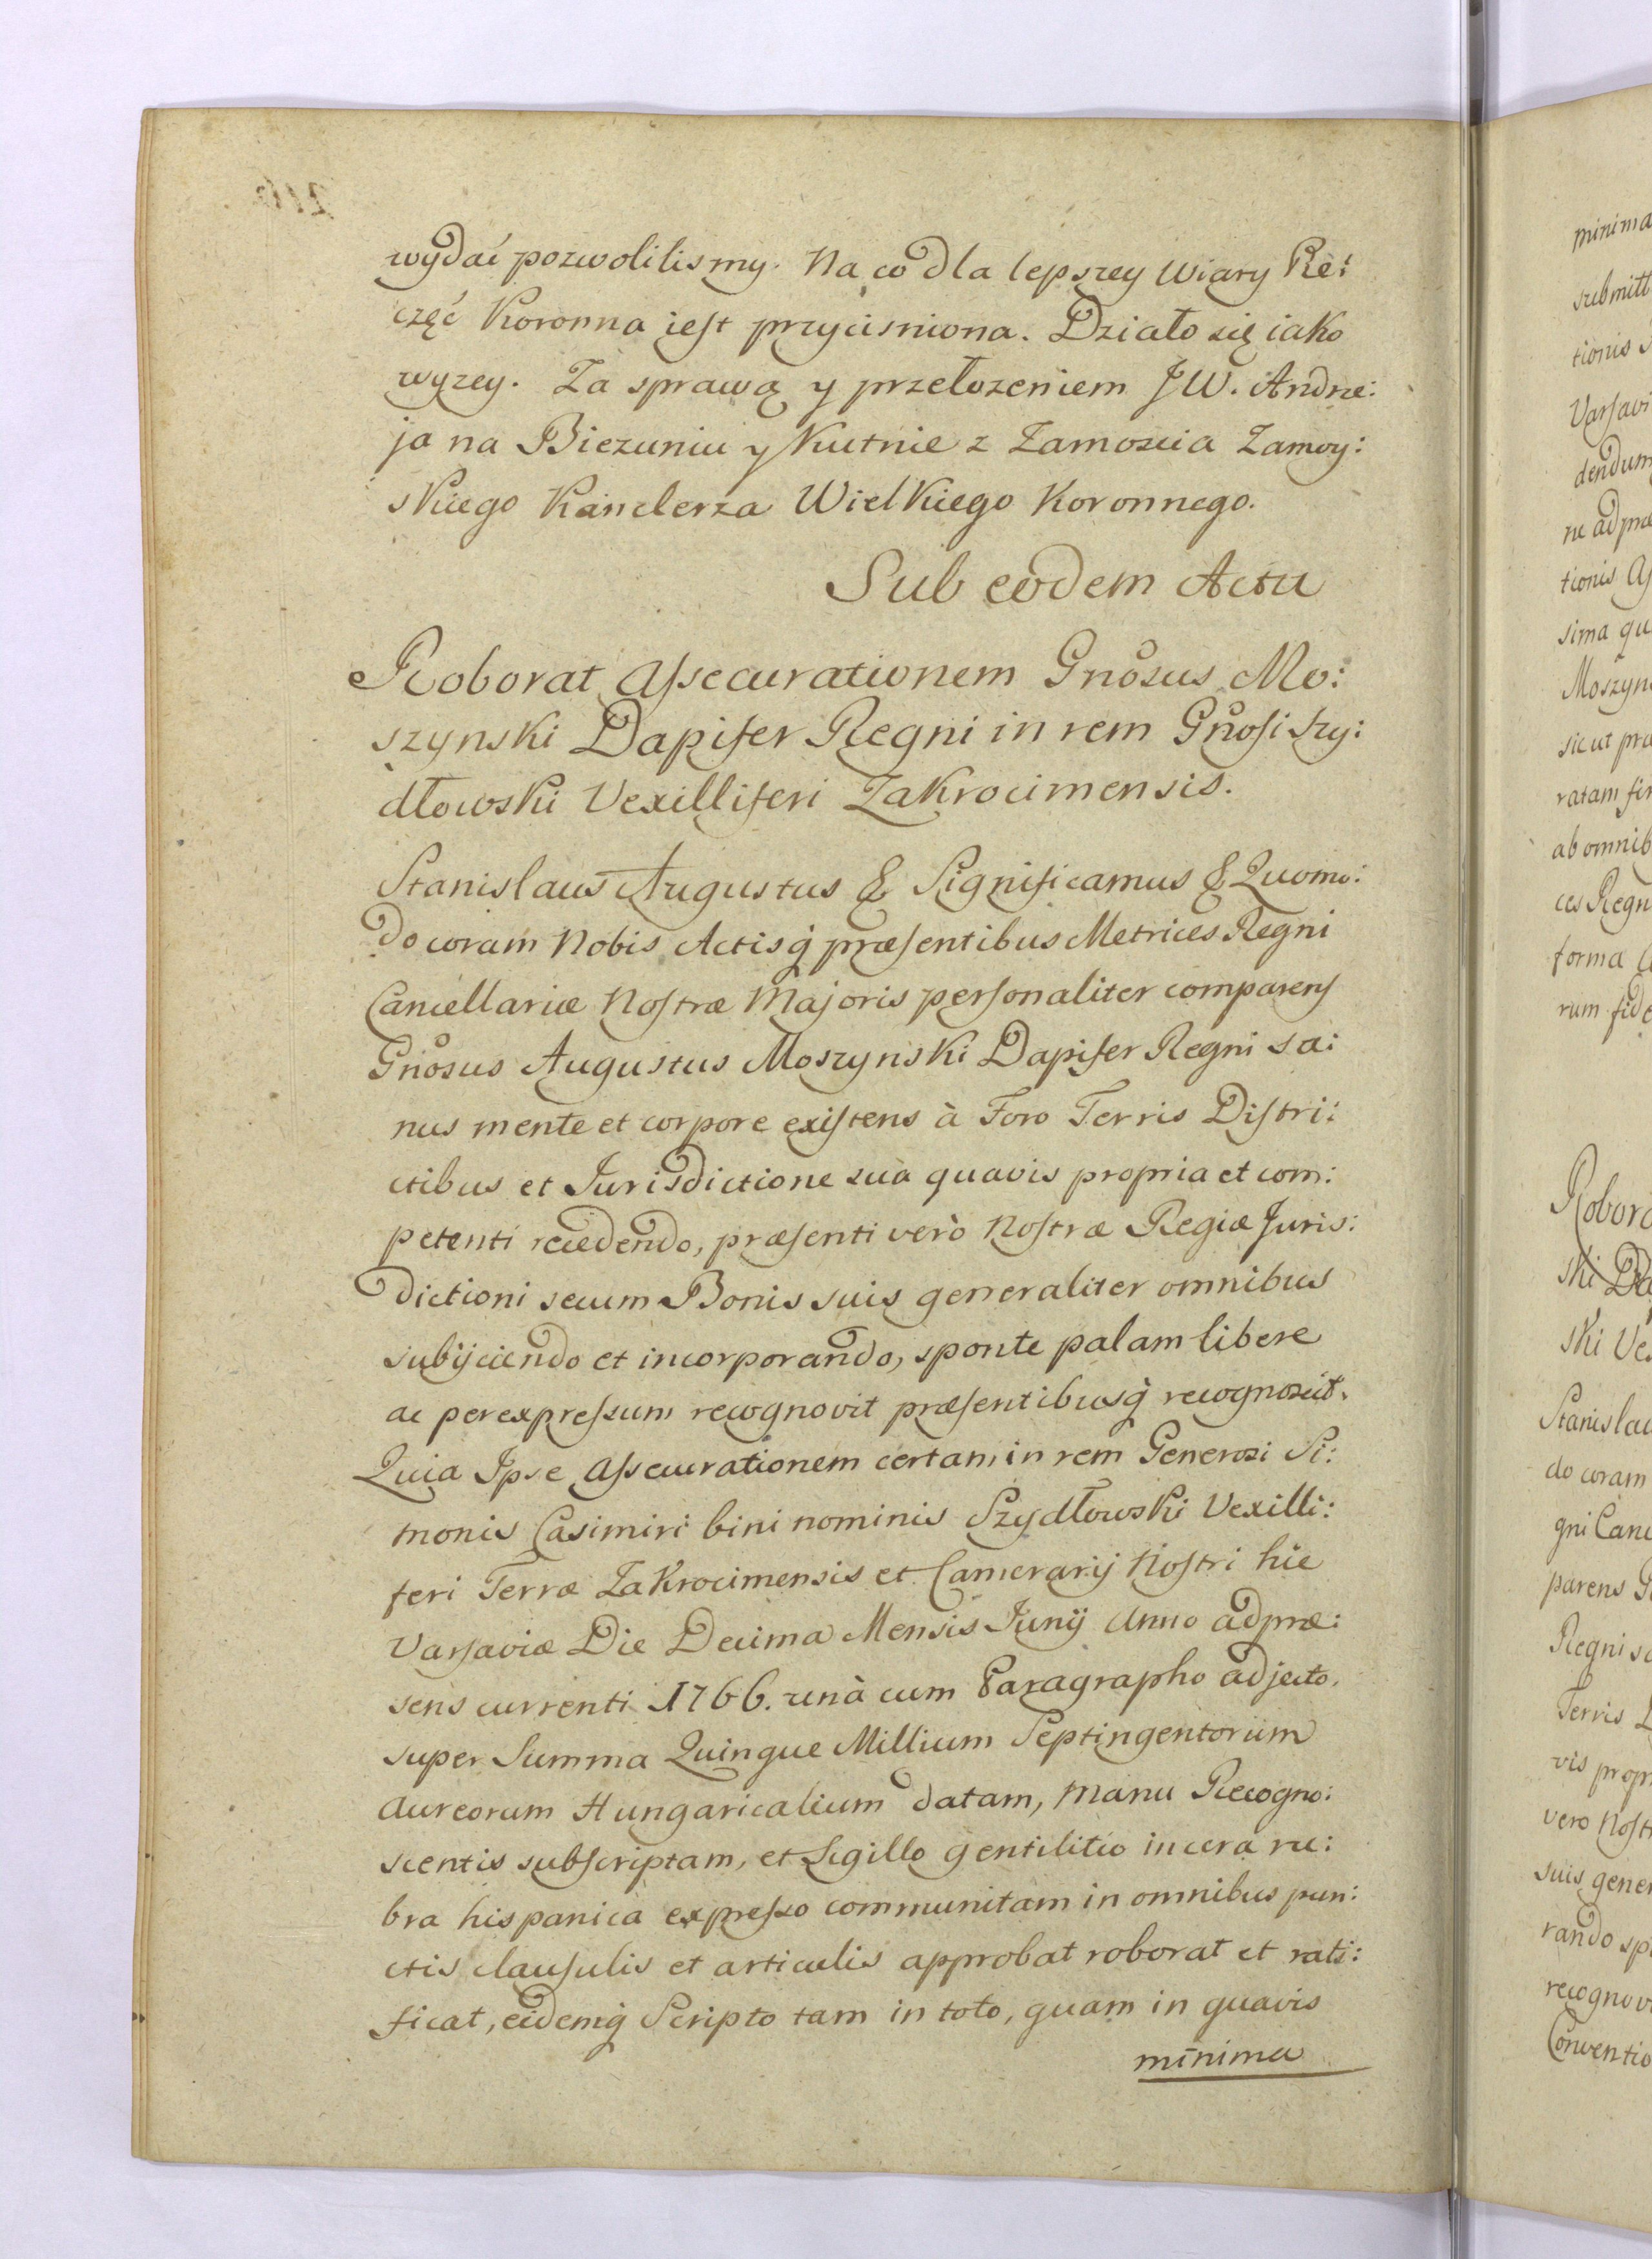 wydać pozwolilismy. Na co dla lepszey Wiary Pie:
częć Koronna iest przycisniona. Działo się iako
wyzey. Za sprawą y przełozeniem JW. Andrze:
ja na Biezuniu y Kutnie z Zamoscia Zamoy:
skiego Kanclerza Wielkiego Koronnego.
Sub eodem Actu
Roborat Assecurationem Gnosus Mo:
szynski Dapifer Regni in rem Gnosi Szy:
dłowski Vexilliferi Zakrocimensis.
Stanislaus Augustus & Significamus & Quomo:
do coram Nobis Actisq̃ præsentibus Metrices Regni
Cancellariæ Nostræ Majoris personaliter comparens
Gnosus Augustus Moszynski Dapifer Regni sa:
nus mente et corpore existens à Foro Terris Distri:
ctibus et Jurisdictione sua quavis propria et com:
petenti recedendo, præsenti verò Nostræ Regiæ Juris:
dictioni secum Bonis suis generaliter omnibus
subijciendo et incorporando, sponte palam libere
ac per expressum recognovit præsentibusq̃ recognoscit.
Quia Ipse Assecurationem certam in rem Generosi Si:
monis Casimiri bini nominis Szydłowski Vexilli:
feri Terræ Zakrocimensis et Camerarij Nostri hic
Varsaviæ Die Decima Mensis Junij Anno ad præ:
sens currenti 1766. unà cum Paragrapho adjecto,
super Summa Quinque Millium Septingentorum
Aureorum Hungaricalium datam, manu Recogno:
scentis subscriptam, et Sigillo gentilitio in cera ru:
bra hispanica expresso communitam in omnibus pun:
ctis clausulis et articulis approbat roborat et rati:
ficat, eidemq̃ Scripto tam in toto, quam in quavis
minima
minima
submitt
tionis s
Varsavi
dendum
ne ad præ
tionis As
sima qu
Moszyn
sicut pra
ratam fir
ab omnib
ces Regn
forma
rum fide
Robora
ski Da
ski Ve
Stanislau
do coram
gni Canc
parens G
Regni sa
Terris D
vis propr
vero Nost
suis gener
rando sp
recognov
Conventio